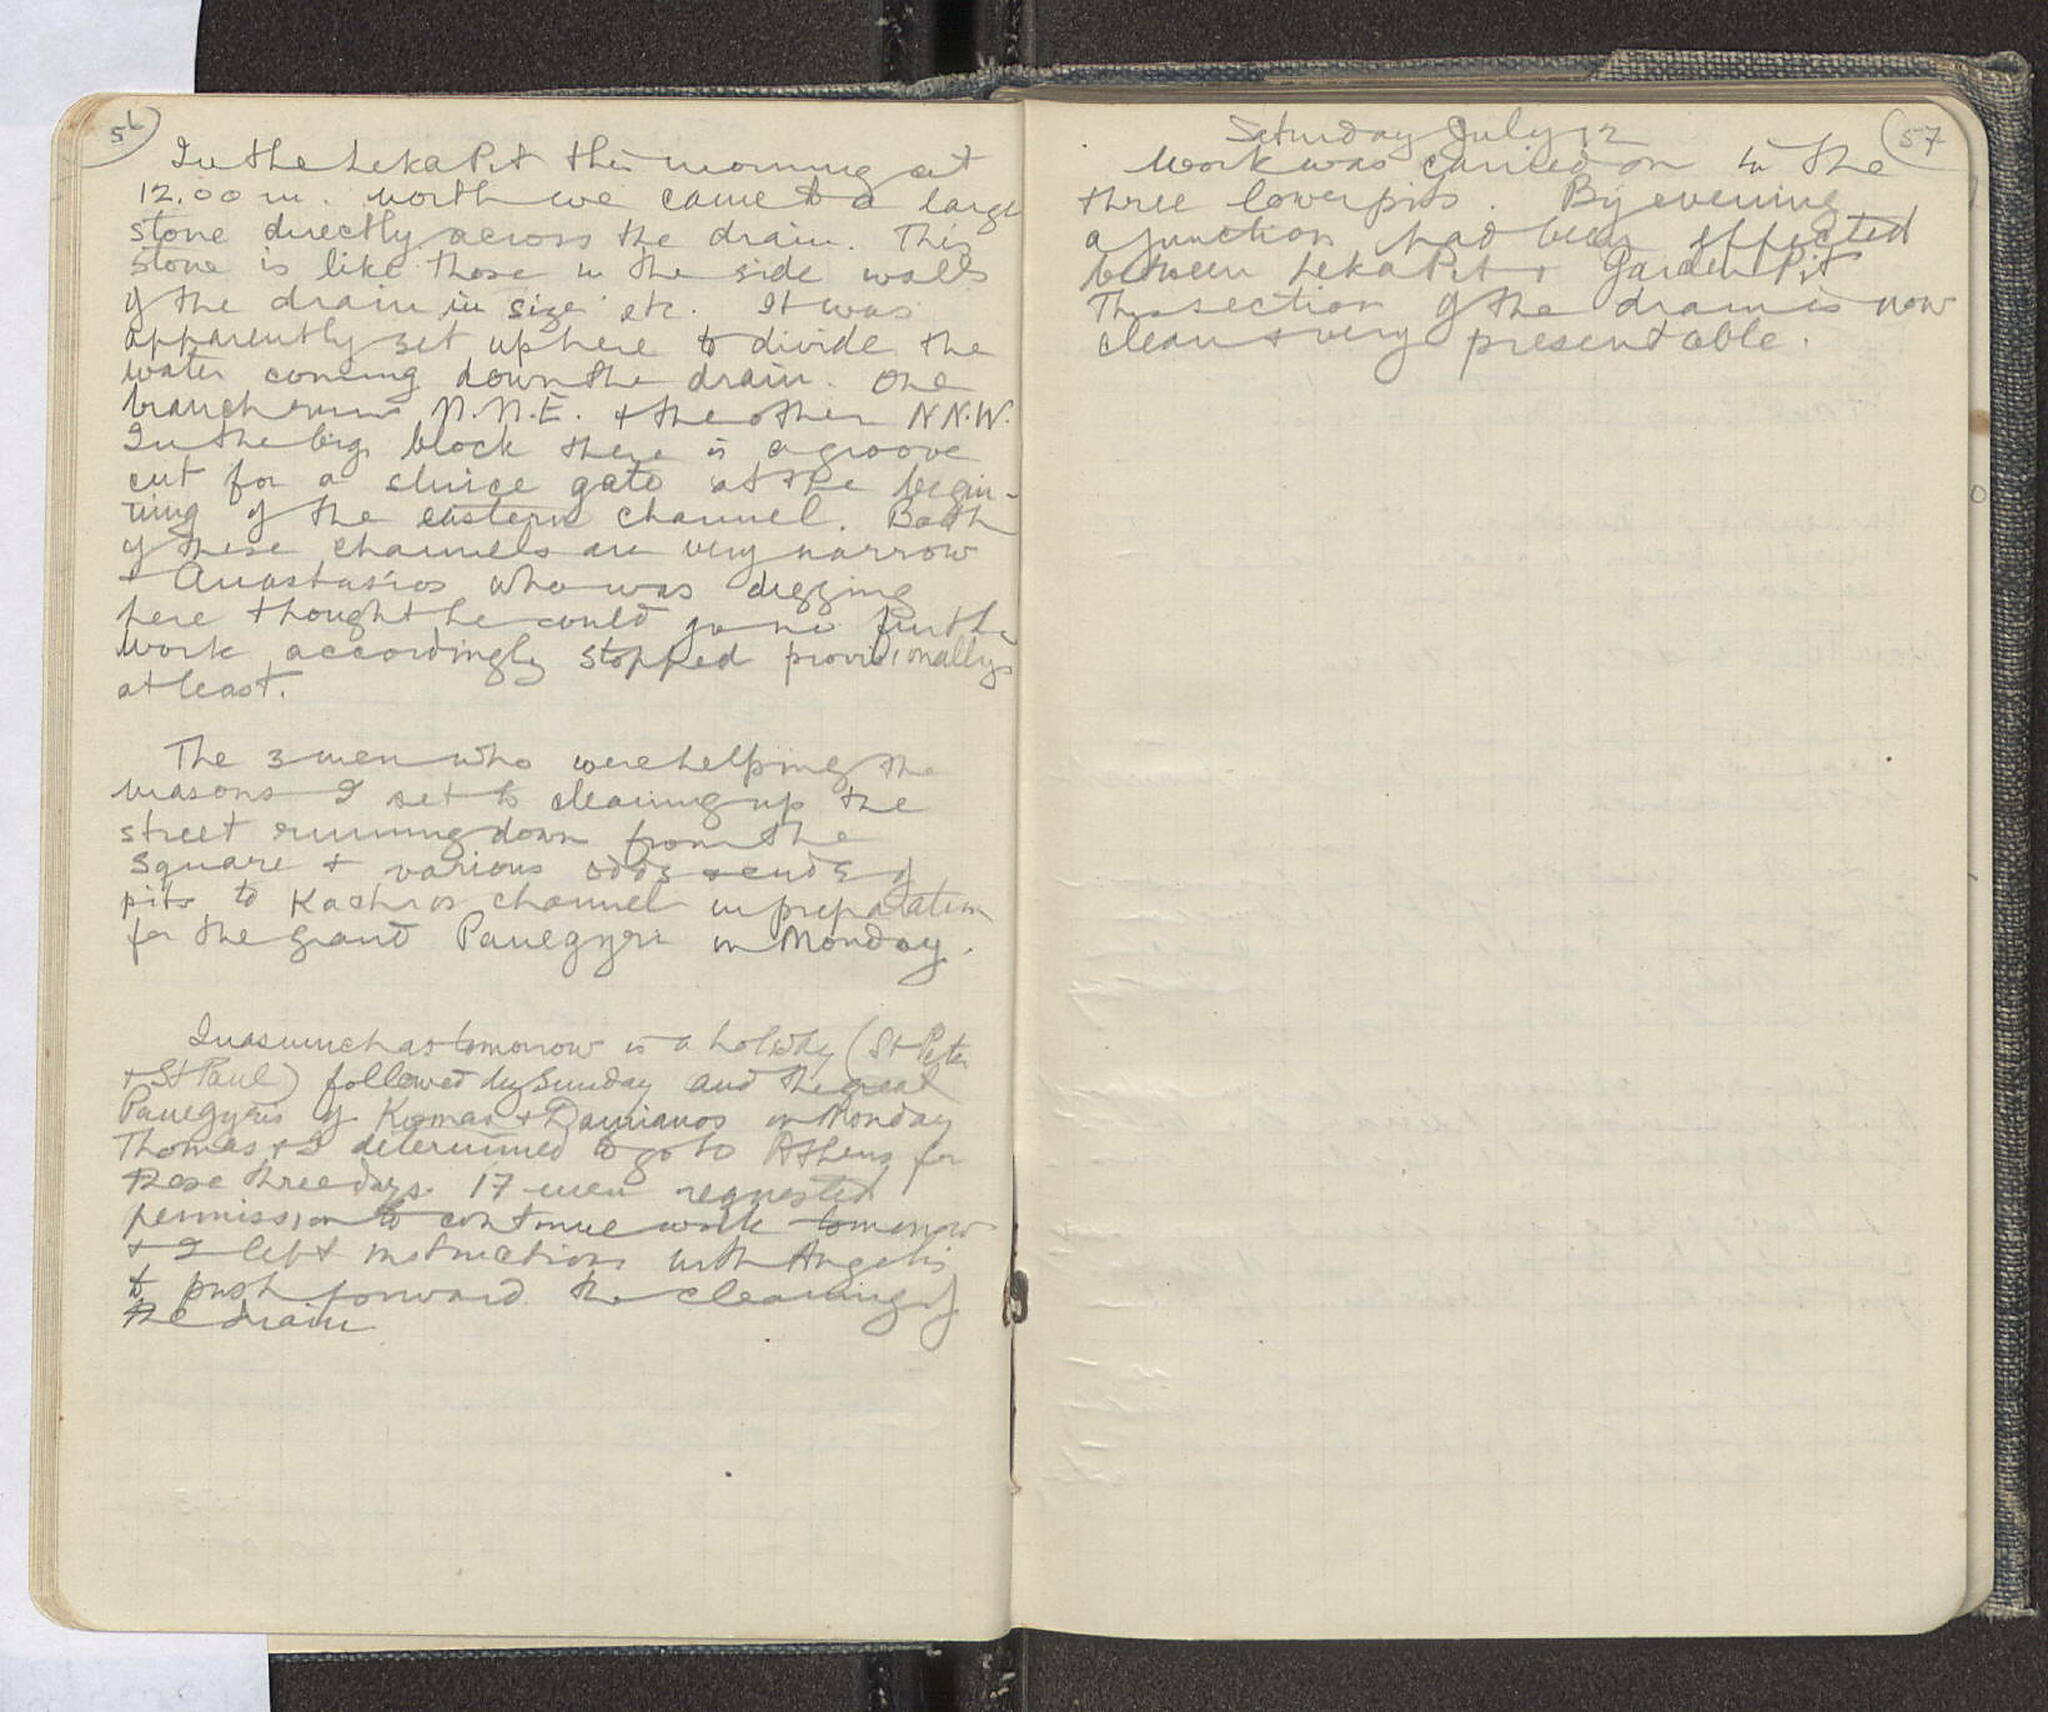 56
In the Leka Pit this morning at
12.00 m. north we came to a large
stone directly across the drain. This
stone is like those in the side walls
of the drain in size etc. It was
apparently set up here to divide the
water coming down the drain. One
branch runs N.N.E. + the other N.N.W.
In the big block there is a groove
cut for a sluice gate at the begin-
ning of the eastern channel. Both
of these channels are very narrow
+ Anastasios who was digging
here thought he could go no further
work accordingly stopped provisionally
at least.
The 3 men who were helping the
masons I set to cleaning up the
street running down from the
square + various odds + ends of
pits to Kachros channel in preparation
for the grand Panegyri on Monday.
Inasmuch as tomorrow is a holiday (St Peter
+ St Paul) followed by Sunday and the great
Panegyris of Kosmas + Damianos on Monday
Thomas + I determined to go to Athens for
these three days. 17 men requested
permission to continue work tomorrow
+ I left instructions with Angelis
to push forward the cleaning of
the drain
57
Saturday July 12
Work was carried on in the
three lower pits. By evening
a junction had been effected
between Leka Pit + Garden Pit
This section of the drain is now
clean + very presentable.